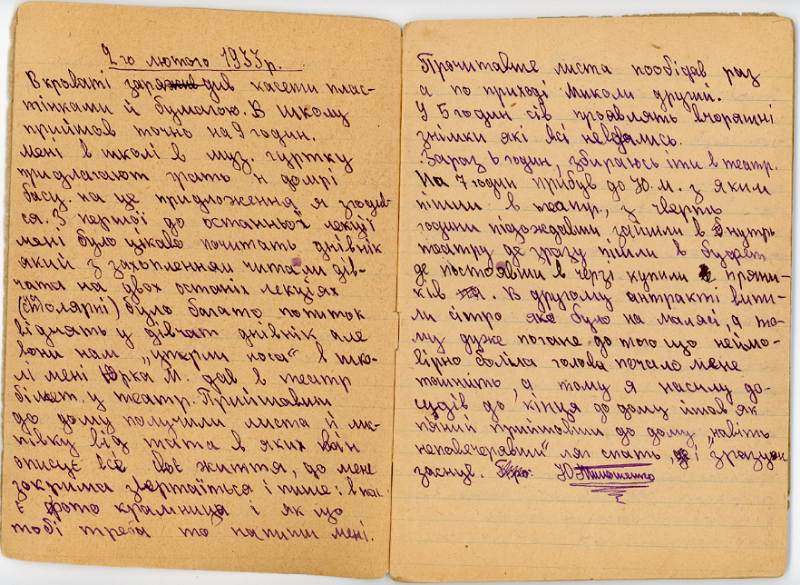 2го лютого 1933 р.
В кроваті заряжив дів касети плас-
тінками й бумагою. В школу
прийшов точно на 9 годин.
Мені в школі в муз. гуртку
придлагают грать н домрі
басу. на це придложення я згодив-
ся. З першої до останньої лекції
мені було цікаво почитать днівнік
який з захопленням читали дів-
чата на двох останіх лекціях
(столярні) було багато попиток
віднять у дівчат днівнік але
вони нам „утерли носа“ в шко-
лі мені Юрка М. дав в театр
білет у театр. Прийшовши
до дому получили листа й лис-
тівку від тата в яких він
описує все своє життя, до мене
зокрима звертаїться і пише: в нас
є фото крамниця і як що
тобі треба то напиши мені.
Прочитавше листа пообідав раз
а по приході Миколи другий.
У 5 годин сів проявлять вчорашні
знімки які всі невдались.
Зараз 6 годин, збираюсь іти в театр.
На 7 годин прибув до Ю. М. з яким
пішли в театр, з чверть
години підождавши зайшли в внутрь
театру де зразу пішли в буфет
де постоявши в черзі купили пряни-
ків. В другому антракті випи-
ли сітро яке було на малясі, а то-
му дуже погане до того що неймо-
вірно боліла голова почало мене
тошнить, а тому я насилу до-
сидів до кінця до дому йшов як
пяний прийшовши до дому „навіть
неповечерявши“ ліг спать, і зразуж
заснув.